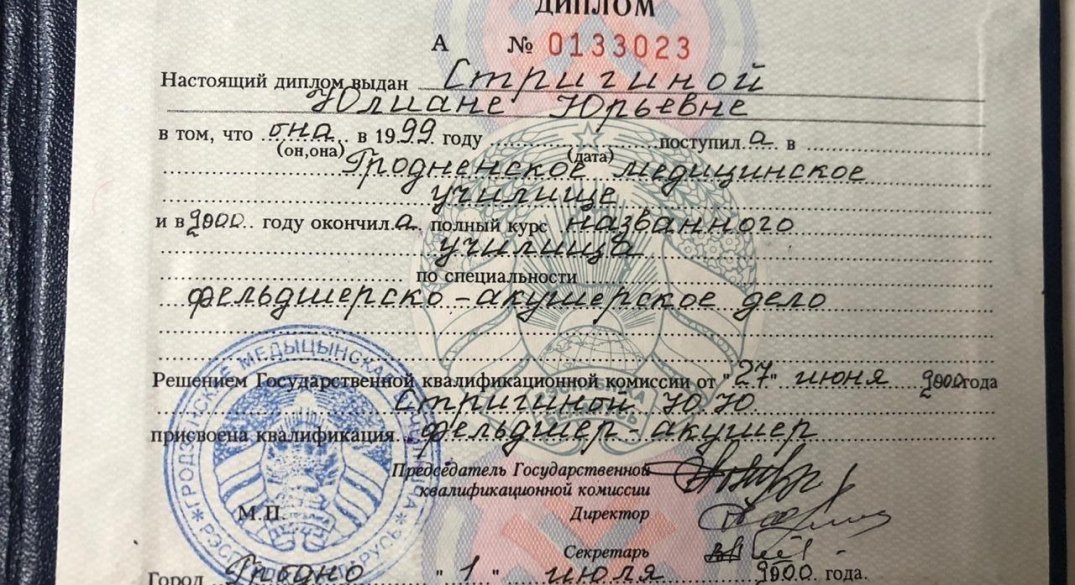 ДИПЛОМ
А № 0133023
Настоящий диплом выдан Стригиной
Юлиане Юрьевне
в том, что она в 1999 году поступила в
(он,она) (дата)
Гродненское медицинское
училище
и в 2000 году окончила полный курс названного
училища
по специальности
фельдшерско-акушерское дело
Решением Государственной квалификационной комиссии от "27" июня 2000 года
Стригиной Ю.Ю
присвоена квалификация фельдшер-акушер
Председатель Государственной
квалификационной комиссии
М.П. Директор
Секретарь
Город Гродно "1" июля 2000 года.
ГРОДЗЕНСКАЕ МЕДЫЦЫНСКАЕ
БЕЛАРУСЬ